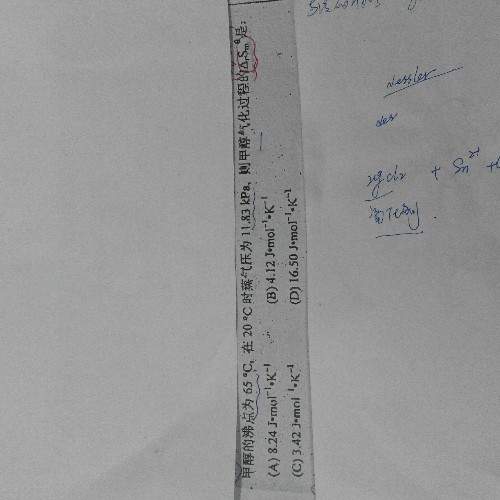 甲醇的沸点为 65 °C, 在 20 °C 时蒸气压为 11.83 kPa, 则甲醇气化过程的ΔᵣSₘ^θ是:
(A) 8.24 J•mol⁻¹•K⁻¹ (B) 4.12 J•mol⁻¹•K⁻¹
(C) 3.42 J•mol⁻¹•K⁻¹ (D) 16.50 J•mol⁻¹•K⁻¹
nessler
nes
+ Sn²⁺ +